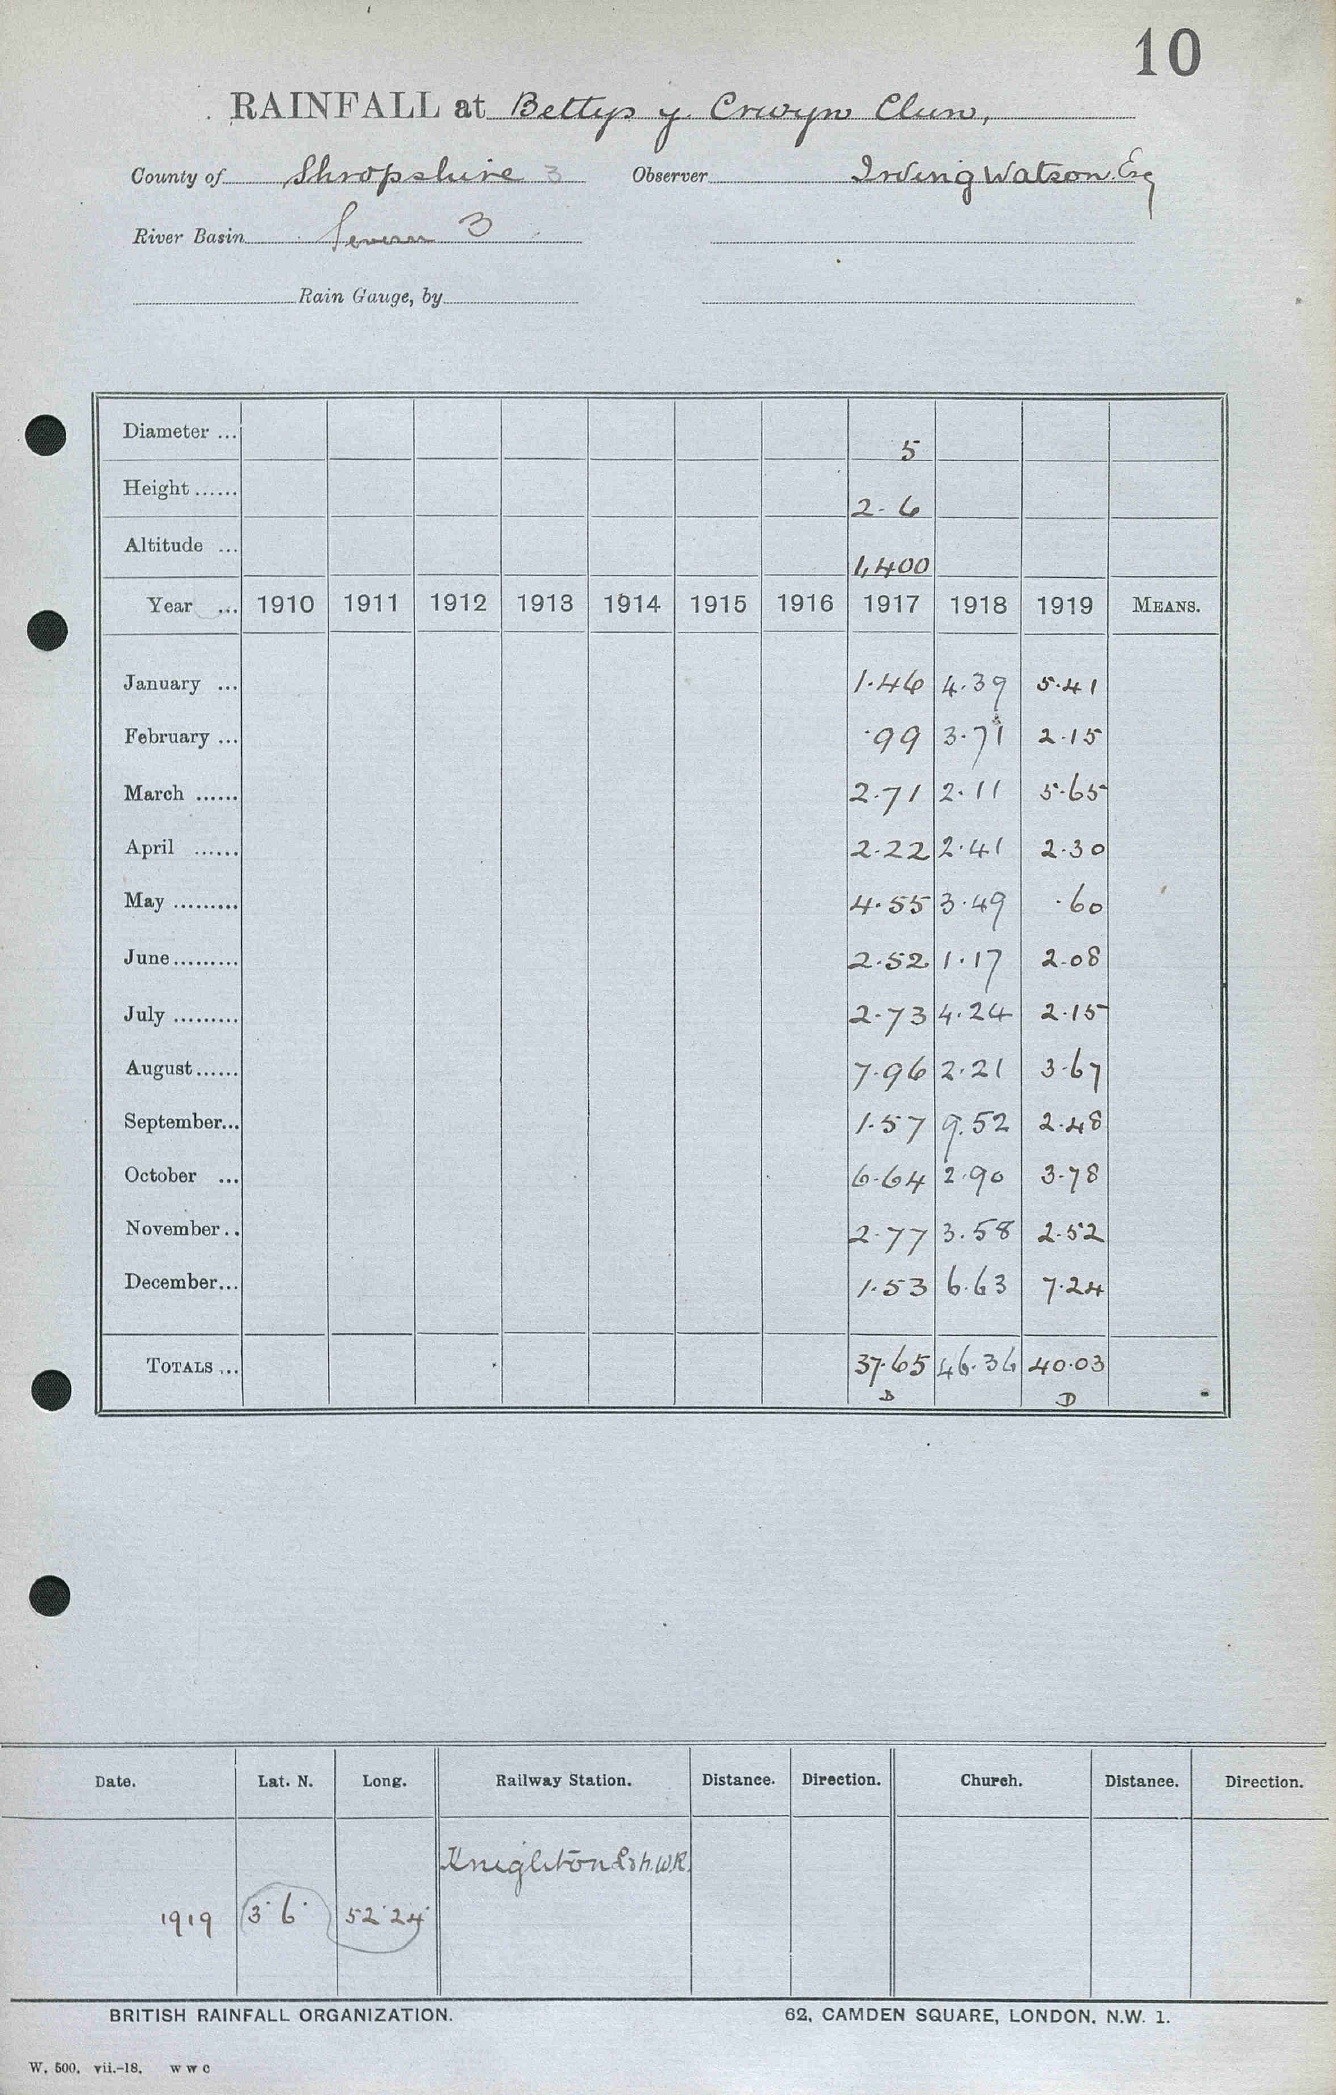 10
RAINFALL at Bettys y Crwyn Clun,
County of Shropshire 3 Observer Irving Watson Esq
River Basin Severn 3
Rain Gauge, by
Diameter ... 5
Height ...... 2-6
Altitude ... 1,400
Year ... 1910 1911 1912 1913 1914 1915 1916 1917 1918 1919 MEANS.
January ... 1.46 4.39 5.41
February ... .99 3.71 2.15
March ...... 2.71 2.11 5.65
April ...... 2.22 2.41 2.30
May ......... 4.55 3.49 .60
June ......... 2.52 1.17 2.08
July ......... 2.73 4.24 2.15
August ...... 7.96 2.21 3.67
September... 1.57 9.52 2.48
October ... 6.64 2.90 3.78
November .. 2.77 3.58 2.52
December... 1.53 6.63 7.24
TOTALS ... 37.65 46.36 40.03
D D
Date. Lat. N. Long. Railway Station. Distance. Direction. Church. Distance. Direction.
Knighton L&N.W.R.
1919 3° 6' 52° 24'
BRITISH RAINFALL ORGANIZATION. 62, CAMDEN SQUARE, LONDON, N.W. 1.
W. 500. vii.-18. W W C